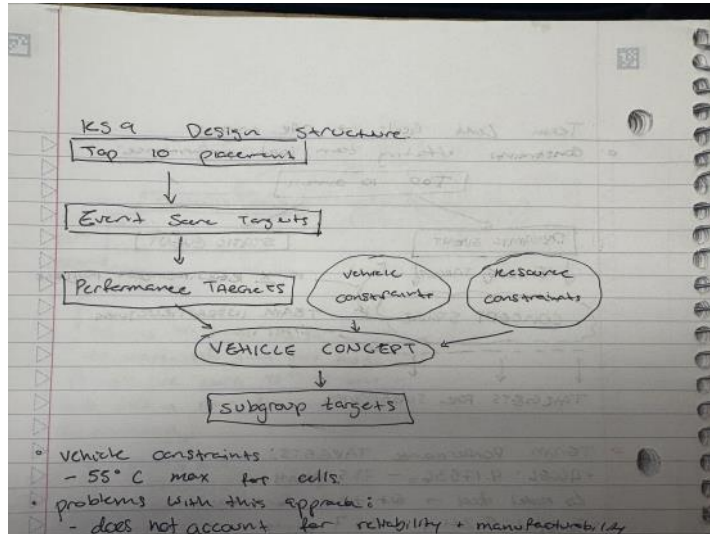 KS9 Design Structure
Top 10 placement
Event Score Targets
Performance TARGETS
vehicle constraints
Resource constraints
VEHICLE CONCEPT
subgroup targets
• vehicle constraints
- 55° C max for cells
• problems with this approach:
- does not account for reliability + manufacturability